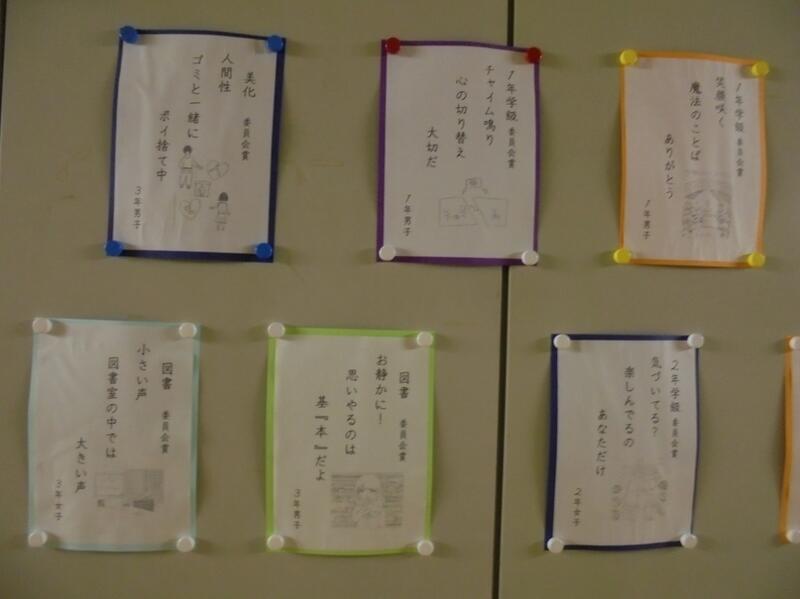 美化 委員会賞
人間性
ゴミと一緒に
ポイ捨て中
3年男子
1年学級 委員会賞
チャイム鳴り
心の切り替え
大切だ
1年男子
1年学級 委員会賞
笑顔咲く
魔法のことば
ありがとう
1年男子
図書 委員会賞
小さい声
図書室の中では
大きい声
3年女子
図書 委員会賞
お静かに!
思いやるのは
基『本』だよ
3年男子
2年学級 委員会賞
気づいてる?
楽しんでるの
あなただけ
2年女子